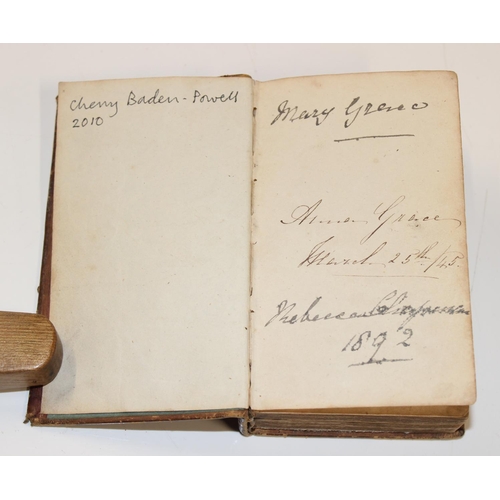 Cherry Baden-Powell
2010
Mary Grace
Anna Grace
March 25th/45.
Rebecca
1892